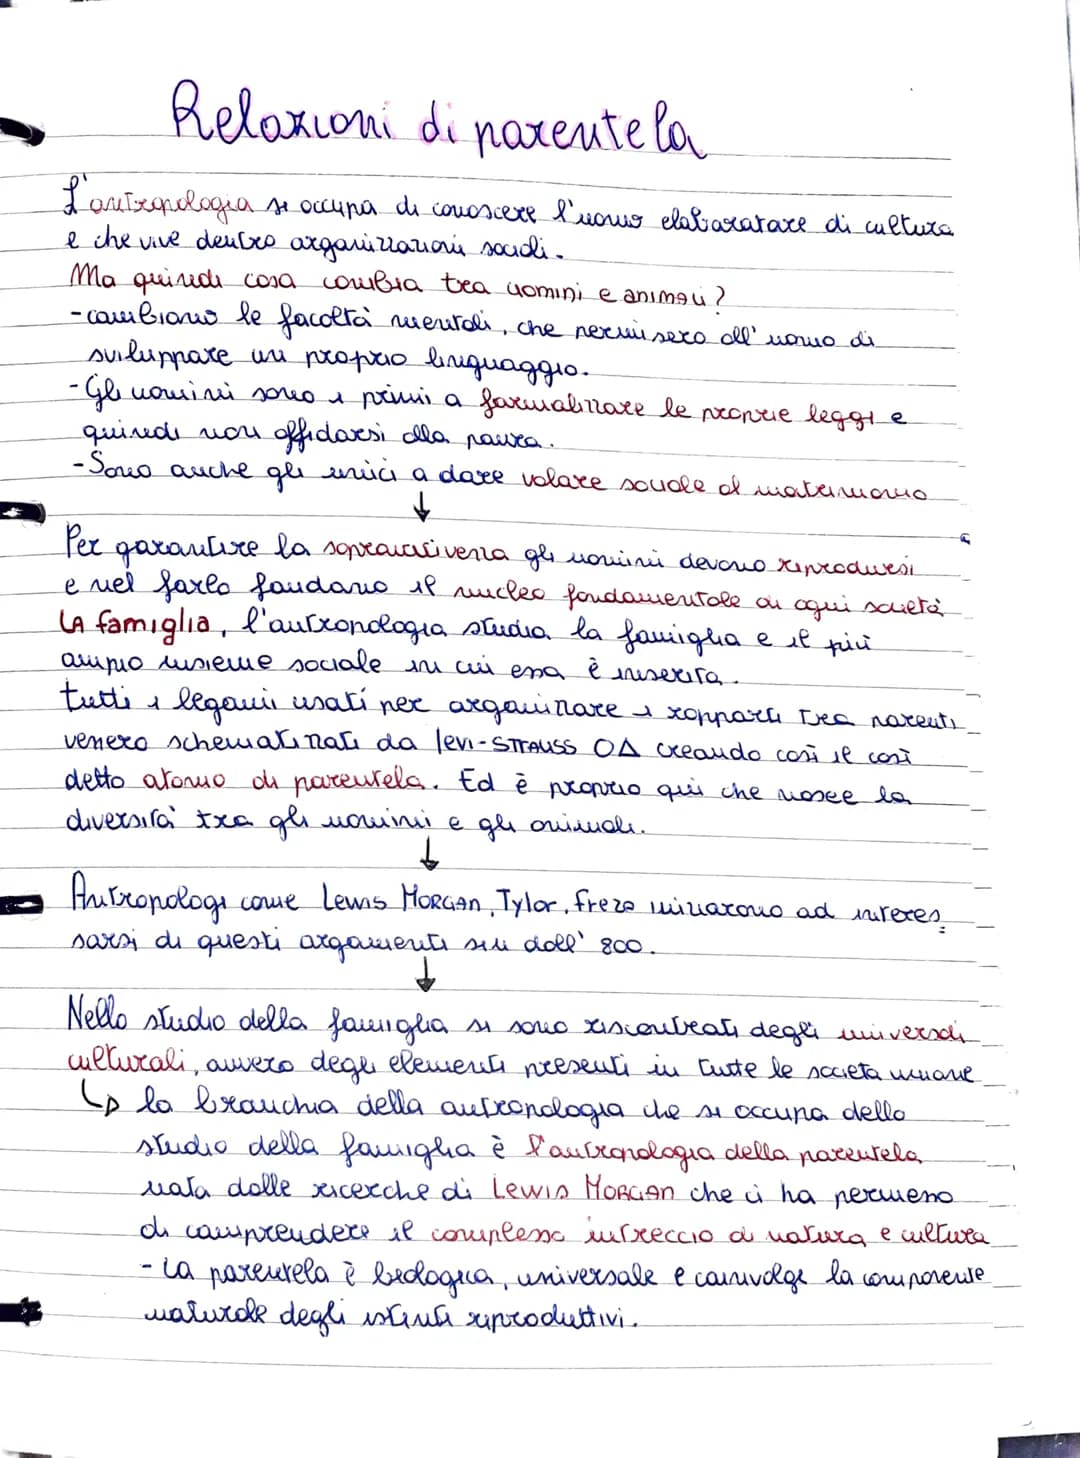 Relazioni di parentela
L'antropologia si occupa di conoscere l'uomo elaboratore di cultura
e che vive dentro organizzazioni sociali.
Ma quindi cosa cambia tra uomini e animali?
-cambiano le facoltà mentali, che permisero all'uomo di
sviluppare un proprio linguaggio.
-Gli uomini sono i primi a formalizzare le proprie leggi e
quindi non affidarsi alla paura.
-Sono anche gli unici a dare valore sociale al matrimonio
↓
Per garantire la sopravvivenza gli uomini devono riprodursi
e nel farlo fondano il nucleo fondamentale di ogni società
LA famiglia, l'antropologia studia la famiglia e il più
ampio insieme sociale in cui essa è inserita.
tutti i legami usati per organizzare i rapporti tra parenti
venero schematizzati da levi-STRAUSS O∆ creando così il così
detto atomo di parentela. Ed è proprio qui che nasce la
diversità tra gli uomini e gli animali.
↓
Antropologi come Lewis MORGAN, Tylor, Freze iniziarono ad interes
sarsi di questi argomenti sin dall'800.
↓
Nello studio della famiglia si sono riscontrati degli universali
culturali, ovvero degli elementi presenti in tutte le società umane
↳ la branchia della antropologia che si occupa dello
studio della famiglia è l'antropologia della parentela
nata dalle ricerche di Lewis MORGAN che ci ha permesso
di comprendere il complesso intreccio di natura e cultura
- La parentela è biologica, universale e coinvolge la componente
naturale degli istinti riproduttivi.